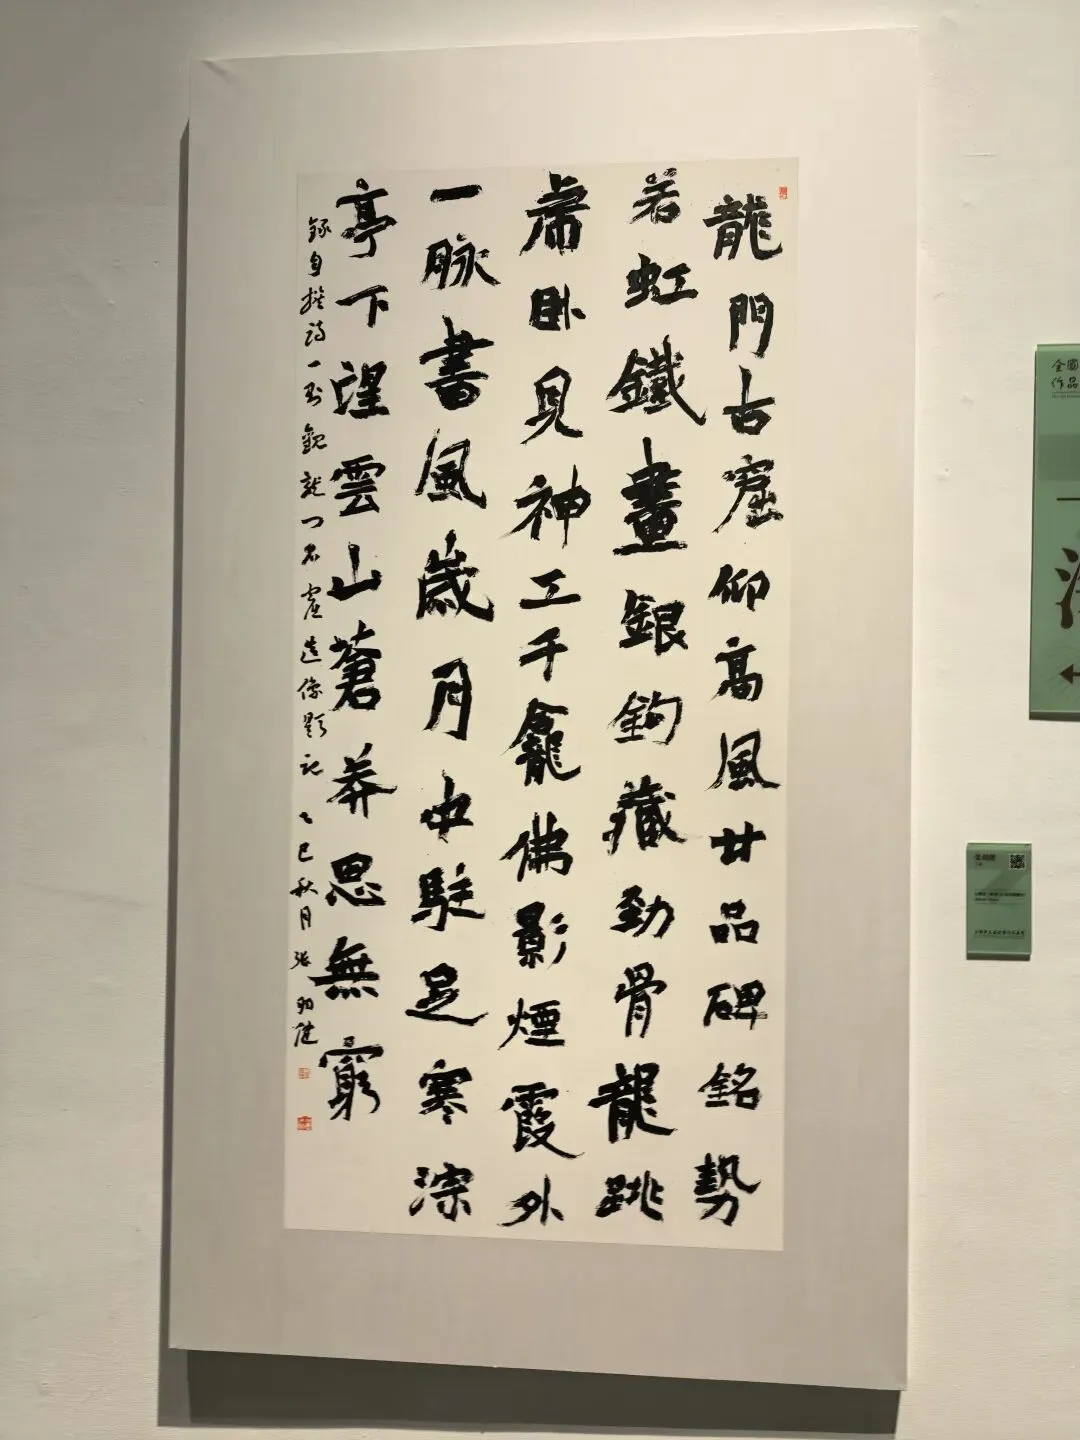 龍門古窟仰高風廿品碑銘勢
若虹鐵畫銀鉤藏勁骨龍跳
虎卧見神工千龕佛影煙霞外
一脉書風歲月中駐足寒淙
亭下望雲山蒼莽思無窮
錄自撰詩一觀龍门石窟造像題记 乙巳秋月張健
全國
作品